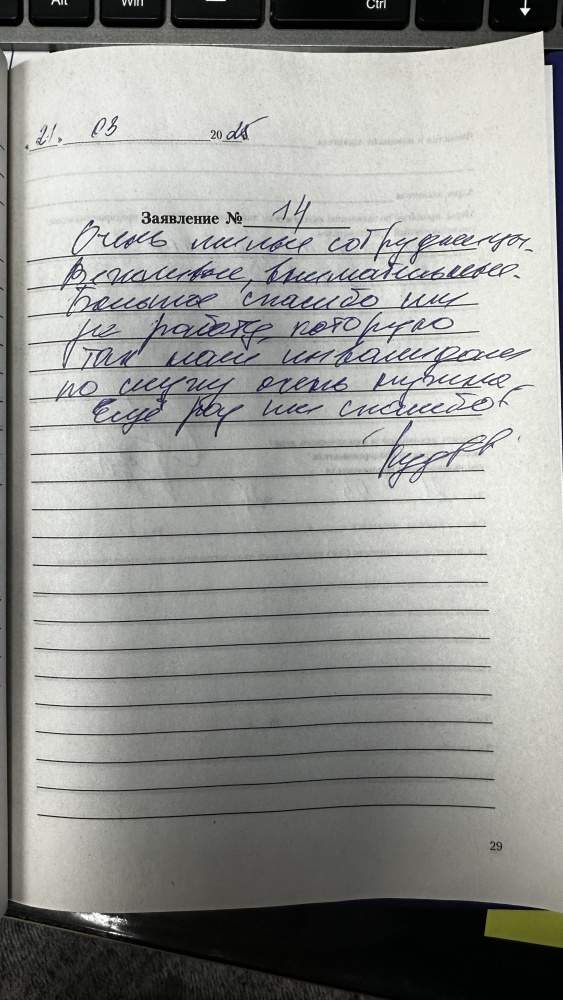 Alt
Win
Ctrl
"21" 03 2025
Заявление № 14
Очень милые сотрудницы.
Вежливые, внимательные.
Большое спасибо им
за работу, которую
так нам инвалидам
по слуху очень нужна.
Ещё раз им спасибо!
29